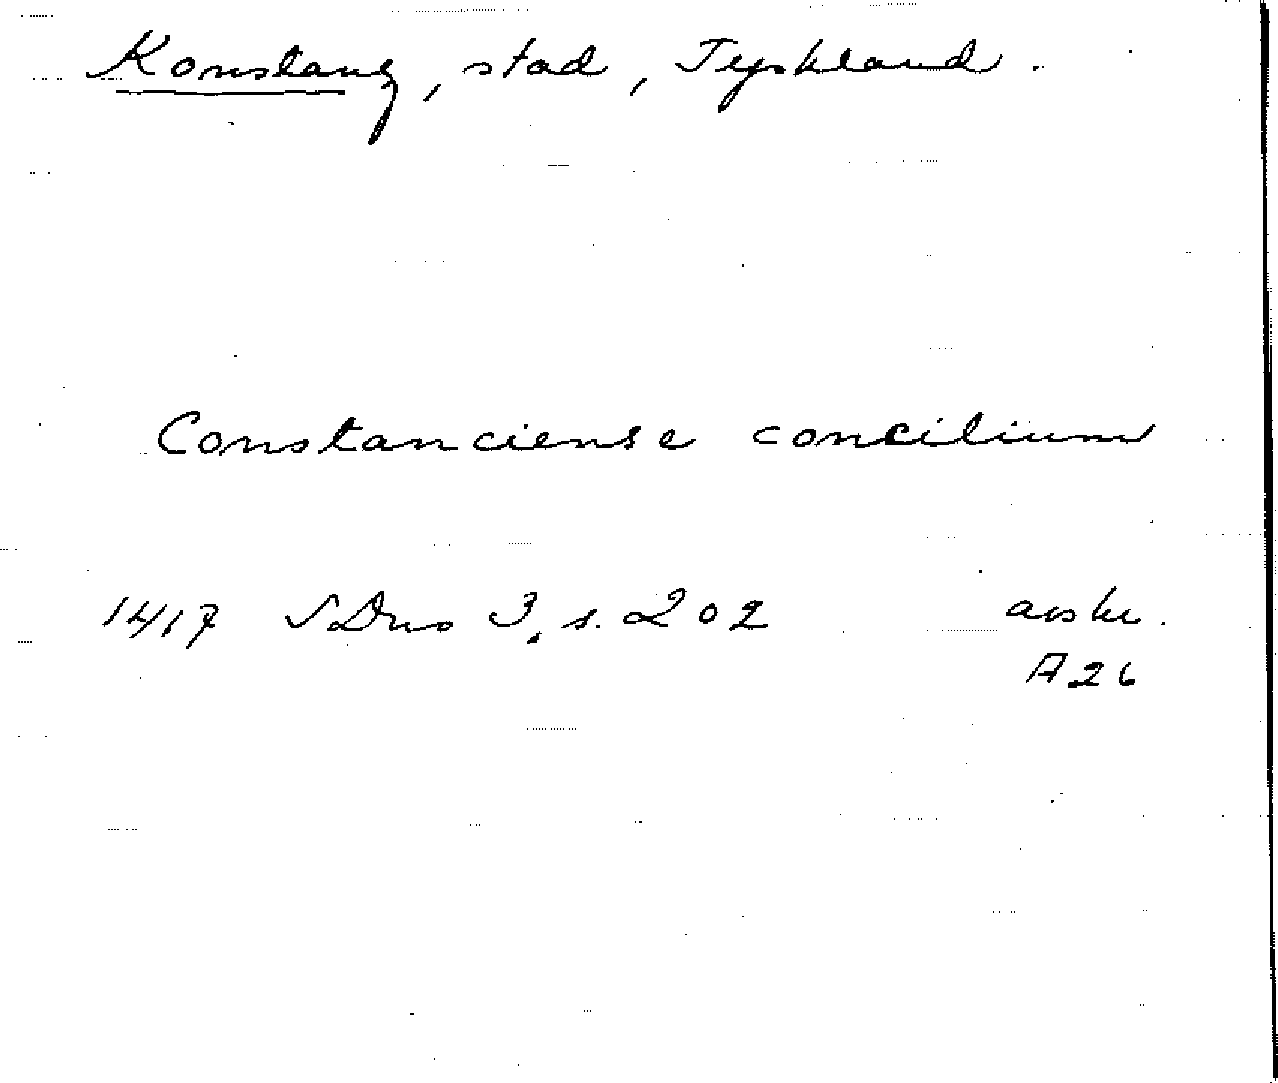 Konstanz, stad, Tyskland.
Constanciense concilium
1417 SDns 3, s. 202 avskr.
A26